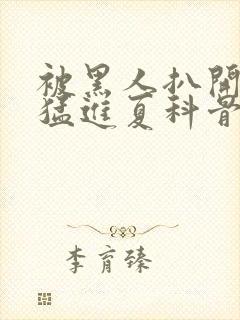 被黑人扒開
猛進夏科背
李育臻